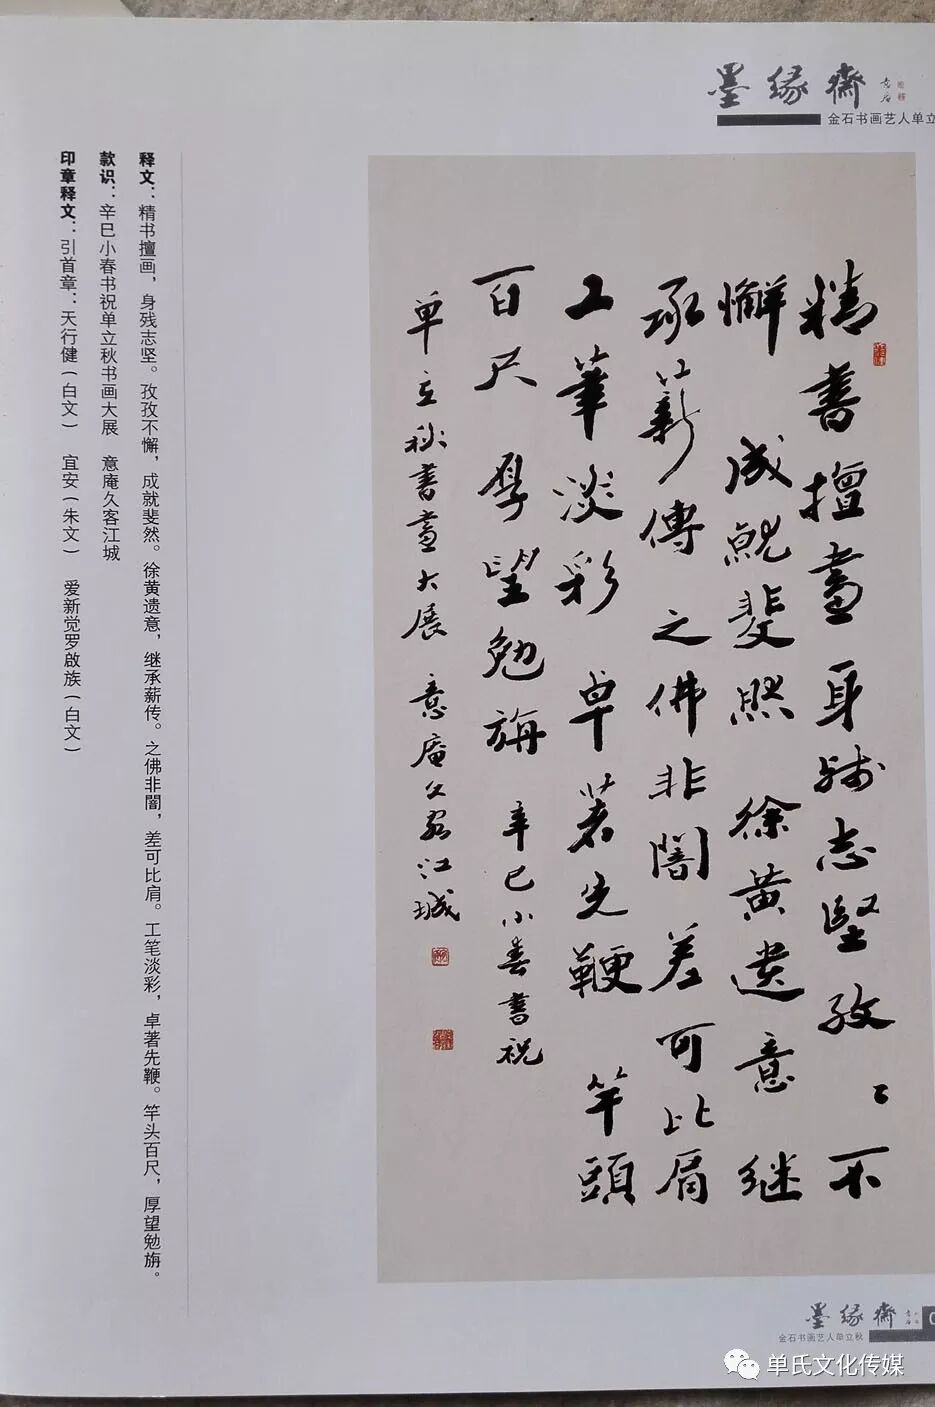 墨缘斋
金石书画艺人单立
精書擅畫身残志堅孜〻不
懈成就斐然徐黄遗意继
承薪傳之佛非闇差可比肩
工筆淡彩卓著先鞭竿頭
百尺厚望勉旃辛巳小春書祝
单立秋書畫大展意庵久客江城
释文：精书擅画，身残志坚。孜孜不懈，成就斐然。徐黄遗意，继承薪传。之佛非闇，差可比肩。工笔淡彩，卓著先鞭。竿头百尺，厚望勉旃。
款识：辛巳小春书祝单立秋书画大展 意庵久客江城
印章释文：引首章：天行健（白文） 宜安（朱文） 爱新觉罗啟族（白文）
墨缘斋
金石书画艺人单立秋
单氏文化传媒